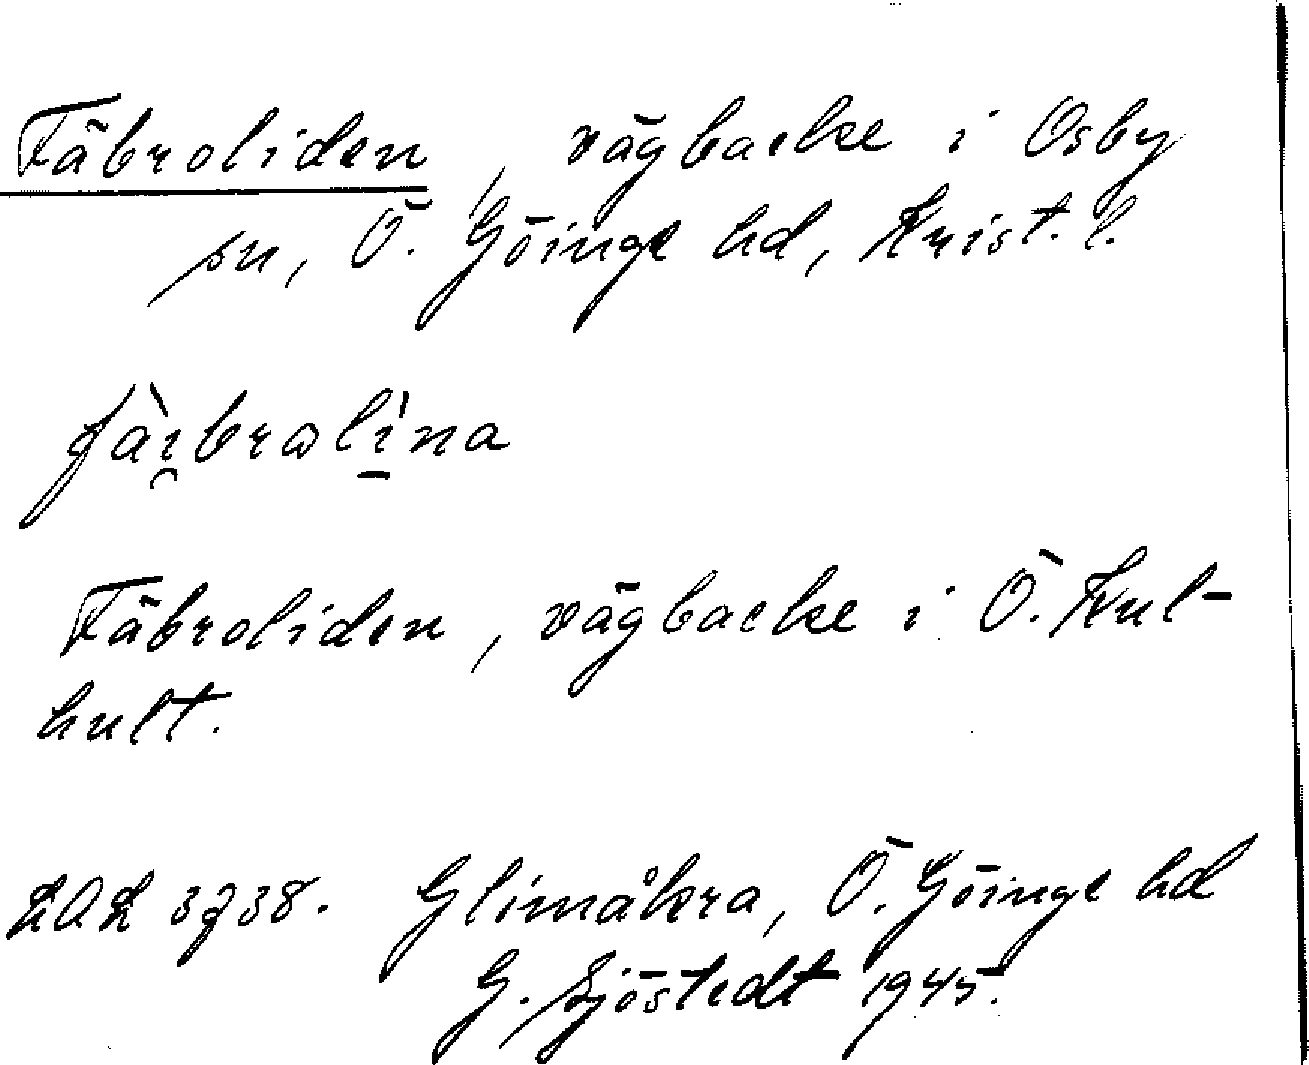 Fäbroliden, vägbacke i Osby
sn, Ö. Göinge hd, Krist. l.
fàı̯brɷlı̱́na
Fäbroliden, vägbacke i Ö. Kul-
hult.
LAL 3738. Glimåkra, Ö. Göinge hd
G. Sjöstedt 1945.